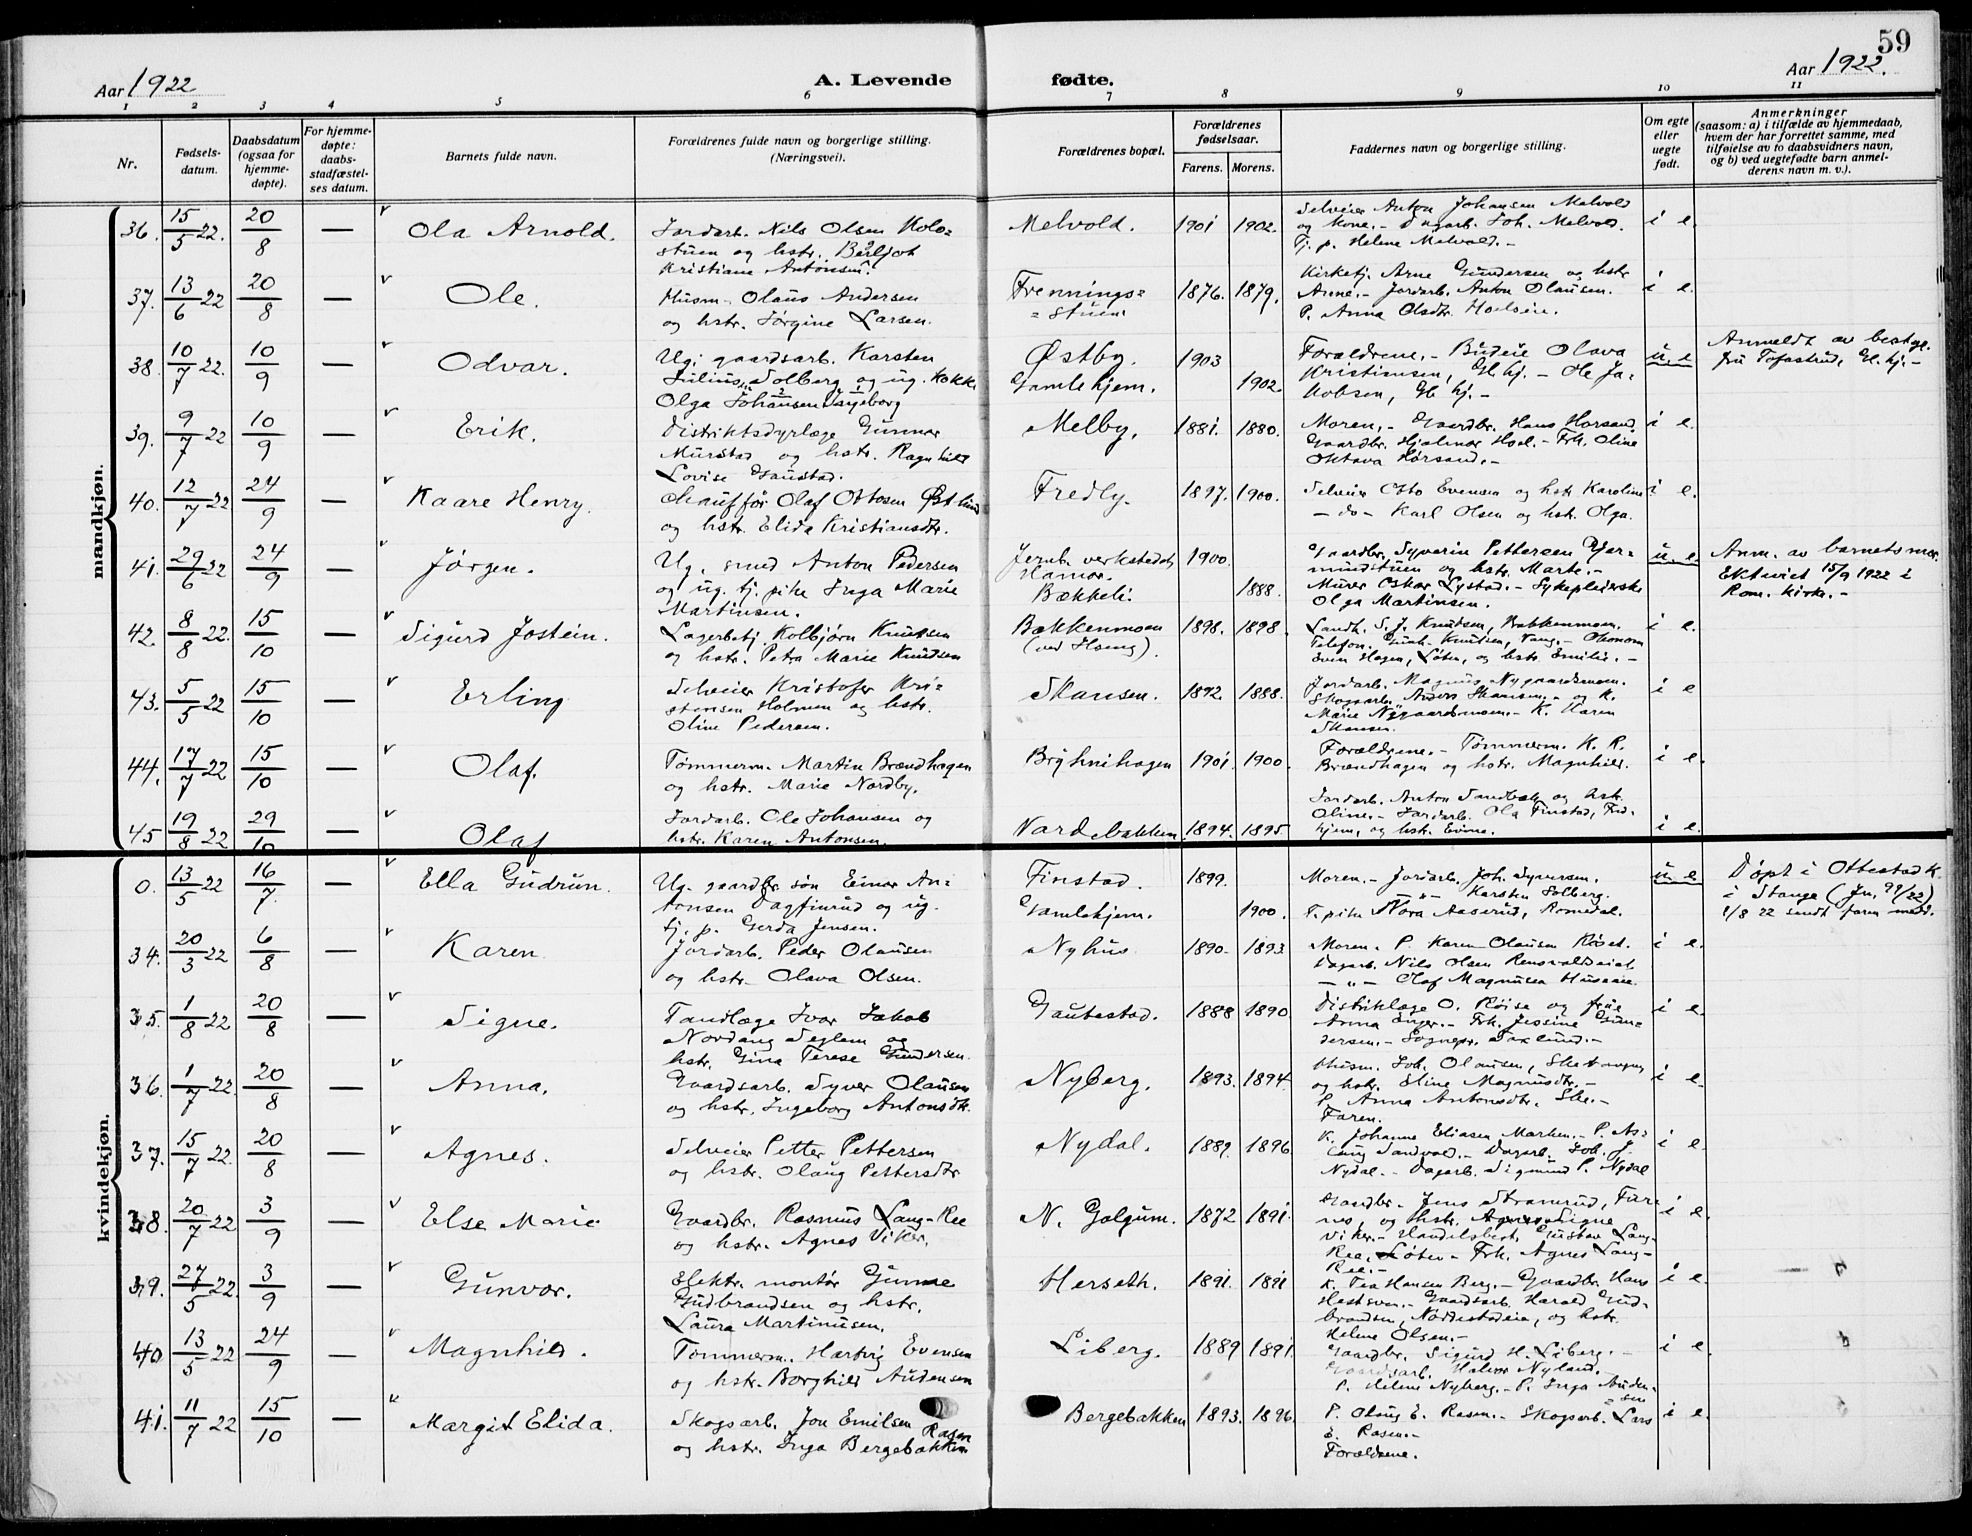 59
Aar 1922.
A. Levende
fødte.
Aar 1922.
1 2 3 4 5 6 7 8 9 10 11
Nr.
Fødsels-
datum.
Daabsdatum
(ogsaa for
hjemme-
døpte).
For hjemme-
døpte:
daabs-
stadfæstel-
ses datum.
Barnets fulde navn.
Forældrenes fulde navn og borgerlige stilling.
(Næringsvei).
Forældrenes bopæl.
Forældrenes
fødselsaar.
Farens. Morens.
Faddernes navn og borgerlige stilling.
Om egte
eller
uegte
født.
Anmerkninger
(saasom: a) i tilfælde av hjemmedaab,
hvem der har forrettet samme, med
tilføielse av to daabsvidners navn,
og b) ved uegtefødte barn anmel-
derens navn m. v.).
mandkjøn.
36. 15/5 22. 20/8 — Ola Arnold.
Jordarb. Nils Olsen Kolo=
stuen og hstr. Bergljot
Kristiane Antonsen.
Melvold. 1901 1902.
Selveier Anton Johansen Melvold
og kone. - Dagarb. Joh. Melvold.
Tj. p. Helene Melvold. -
i e.
37. 13/6 22 20/8 — Ole.
Husm. Olaus Andersen
og hstr. Jørgine Larsen.
Frennings=
=stuen. 1876. 1879.
Kirketj. Arne Gundersen og hstr
Anne. - Jordarb. Anton Olausen.
P. Anna Olsdtr.
i e.
38. 10/7 22. 10/9 — Odvar.
Ug. gaardsarb. Karsten
Julius Solberg og ug. kokk.
Olga Johansen Ingeborg
Østby. 1903
Gamlehjem. 1902.
Forældrene. - Budeie Olava
Kristiansen, Gl. hj. - Ole Ja-
kobsen, Gl. hj. -
u. e
Anmeldt av bestyr.
fru Tofastrud, Gl. hj. -
39. 9/7 22 10/9 — Erik.
Distriktsdyrlæge Gunnar
Murstad og hstr. Ragnhild
Lovise Haustad.
Melby. 1881. 1880.
Moren. - Gaardbr. Hans Horsand.
Gaardbr. Hjalmar Hoel. - Frk. Oline
Oktava Horsand. -
i e.
40. 12/7 22 24/9 — Kaare Henry.
Chauffør Olaf Ottosen Østlund
og hstr. Elida Kristiansdtr.
Fredly. 1897. 1900.
Selveier Otto Evensen og hstr Karoline
- do - Karl Olsen og hstr. Olga.
i e.
41. 29/6 22 24/9 — Jørgen.
Ug. smed Anton Pedersen
og ug. tj. pike Inga Marie
Martinsen.
Jernb. verkstedet,
Hamar. 1900.
Bækkeli. 1888.
Gaardbr. Syverin Pettersen Gjer-
mundstuen og hstr. Marte. -
Murer Oskar Lystad. - Sykepleierske
Olga Martinsen.
u. e
Anm. av barnets mor.
Ektviet 15/9 1922 i
Rom. kirke. -
42. 8/8 22. 15/10 — Sigurd Jostein.
Lagerbetj. Kolbjørn Knutsen
og hstr. Petra Marie Knudsen
Bækkenmoen
(ved Hjoung). 1898. 1898.
Landh. S. J. Knudsen, Bækkenmoen.
Telefon. Gunh. Knutsen, Vang. - Økonom
Even Hagen, Løten, og hstr Emilie. -
i e.
43. 5/5 22 15/10 — Erling
Selveier Kristofer Kri-
stensen Holmen og hstr.
Oline Pedersen.
Skansen. 1892. 1888.
Jordarb. Magnus Nygaardsmoen.
Skogsarb. Anders Skansen. - og K.
Marie Nygaardsmoen. - K. Karen
Skansen.
i e
44. 17/7 22 15/10 — Olaf.
Tømmerm. Martin Brændhagen
og hstr. Marie Nordby.
Bryhnihagen 1901. 1900.
Forældrene. - Tømmerm. K. R.
Brændhagen og hstr. Magnhild.
i e.
45 19/8 22 29/10 — Olaf
Jordarb. Ole Johansen og
hstr. Karen Antonsen.
Nordbakken. 1894. 1895.
Jordarb. Anton Sandbæk og hstr.
Oline. - Jordarb. Ola Finstad, Fred-
hjem, og hstr. Evine.
i e.
kvindekjøn.
0. 13/5 22 16/7. — Ella Gudrun.
Ug. gaardbr. søn Einar An-
tonsen Dagfinrud og ug.
tj. p. Gerda Jensen.
Finstad. 1899.
Gamlehjem. 1900.
Moren. - Jordarb. Joh. Syversen.
- " - Karsten Solberg.
T. pike Nora Aaserud, Romedal.
u e
Døpt i Ottestad k.
i Stange (Jn. 99/22)
1/8 22 sendt farm. medd.
34. 20/3 22 6/8 — Karen
Jordarb. Peder Olausen
og hstr. Olava Olsen.
Nyhus. 1890. 1893
Moren. P. Karen Olausen Røset.
Dagarb. Nils Olsen
- " - Olaf Magnusen
i e.
35. 1/8 22 20/8 — Signe.
Tandlæge Ivar Jakob
Nordang Seglem og
hstr. Gina Terese Gundersen.
Gaubestad. 1888 1890.
Distriktlæge O. Røise og frue
Anna Enger. - Frk. Jessine Gun-
dersen. - Sognepr. Saxlund. -
i e.
36. 1/7 22. 20/8 — Anna.
Gaardsarb. Syver Olausen
og hstr. Ingeborg Antonsdtr.
Nyberg. 1893. 1894.
Husm. Joh. Olausen,
og hstr. Eline Magnusdtr. -
P. Anna Antonsdtr. Sle. -
Faren.
i e.
37. 15/7 22. 20/8 — Agnes.
Selveier Petter Pettersen
og hstr. Olaug Pettersdtr
Nydal. 1889. 1896.
K. Johanne Eliasen Marken. - P. As-
laug Sandvold. - Dagarb. Joh. J.
Nydal. - Dagarb. Sigmund P. Nydal
i e.
38. 20/7 22 3/9 — Else Marie
Gaardbr. Rasmus Lang-Ree
og hstr. Agnes Viker.
N. Golgum. 1872 1891.
Gaardbr. Jens Stramrud, Fur-
nes, og hstr. Agnes Signe
Viker. - Handelsbest. Gustav Lang-
Ree, Løten - Frk. Agnes Lang-
Ree. -
i e.
39. 27/5 22. 3/9 — Gunvor.
Elektr. montør Gunne
Gudbrandsen og hstr.
Laura Martinusen.
Herseth. 1891. 1891
K. Tea Hansen Berg. - Gaardbr. Hans
Hestsven. - Gaardsarb. Harald Gud-
brandsen, Nordstadeie, og hstr.
Helene Olsen. -
i e.
40 13/5 22 24/9 — Magnhild.
Tømmerm. Hartvig Evensen
og hstr. Borghild Audensen
Liberg. 1889 1891.
Gaardbr. Sigurd H. Liberg. -
Gaardsarb. Halvor Nyland.
P. Helene Nyberg. - P. Inga Auden-
=sen
i e.
41. 11/7 22 15/10 — Margit Elida.
Skogsarb. Jon Emilsen Rasen
og hstr. Inga Bergebakken
Bergebakken 1893. 1896.
P. Olaug E. Rasen. - Skogsarb. Lars
E. Rasen. -
Forældrene.
i e.